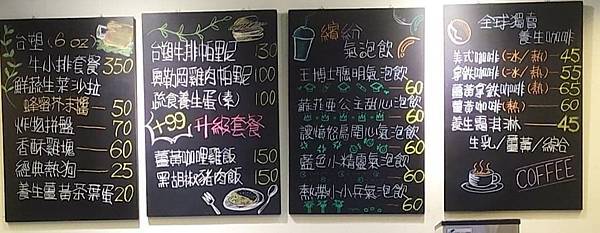 台塑(6 oz)
牛小排套餐 350
鮮蔬生菜沙拉
蜂蜜芥末醬 50
炸物拼盤 70
香酥雞塊 60
經典熱狗 25
養生薑黃茶葉蛋 20
台塑牛排帕里尼 130
奧勒岡雞肉帕里尼 100
蔬食養生蛋(素) 100
+99 升級套餐
薑黃咖哩雞飯 150
黑胡椒豬肉飯 150
繽紛
氣泡飲
王博士聰明氣泡飲
60
蘇菲亞公主甜心氣泡飲
60
讓憤怒鳥開心氣泡飲
60
藍色小精靈氣泡飲
60
熱帶小小兵氣泡飲
60
全球獨賣
養生咖啡
美式咖啡(冰/熱) 45
拿鐵咖啡(冰/熱) 55
薑黃拿鐵咖啡(冰/熱) 65
薑黃咖啡(熱) 60
養生霜淇淋 45
生乳/薑黃/綜合
COFFEE